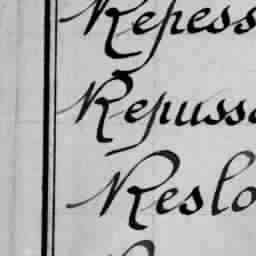 Repess
Repussa
Reslo